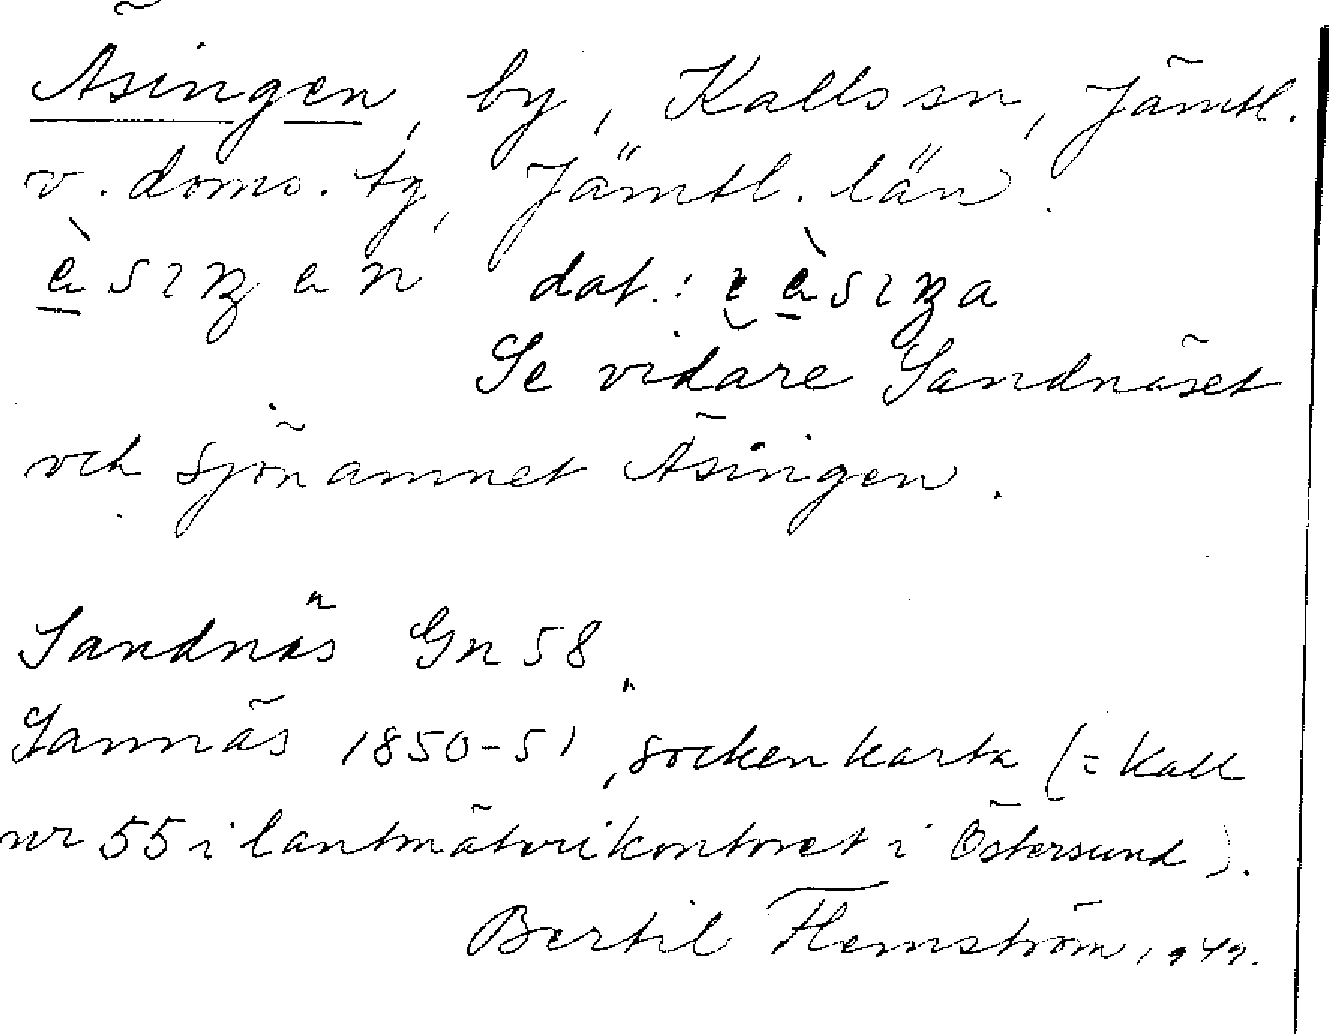 Äsingen, by, Kalls sn, Jämtl.
v. doms. tg, Jämtl. län.
dat.:
Se vidare Sandnäset
och sjönamnet Äsingen.
Sandnäs Gn 58
Sannäs 1850-51, sockenkarta (= Kall
nr 55 i lantmäterikontoret i Östersund).
Bertil Flemström, 1949.